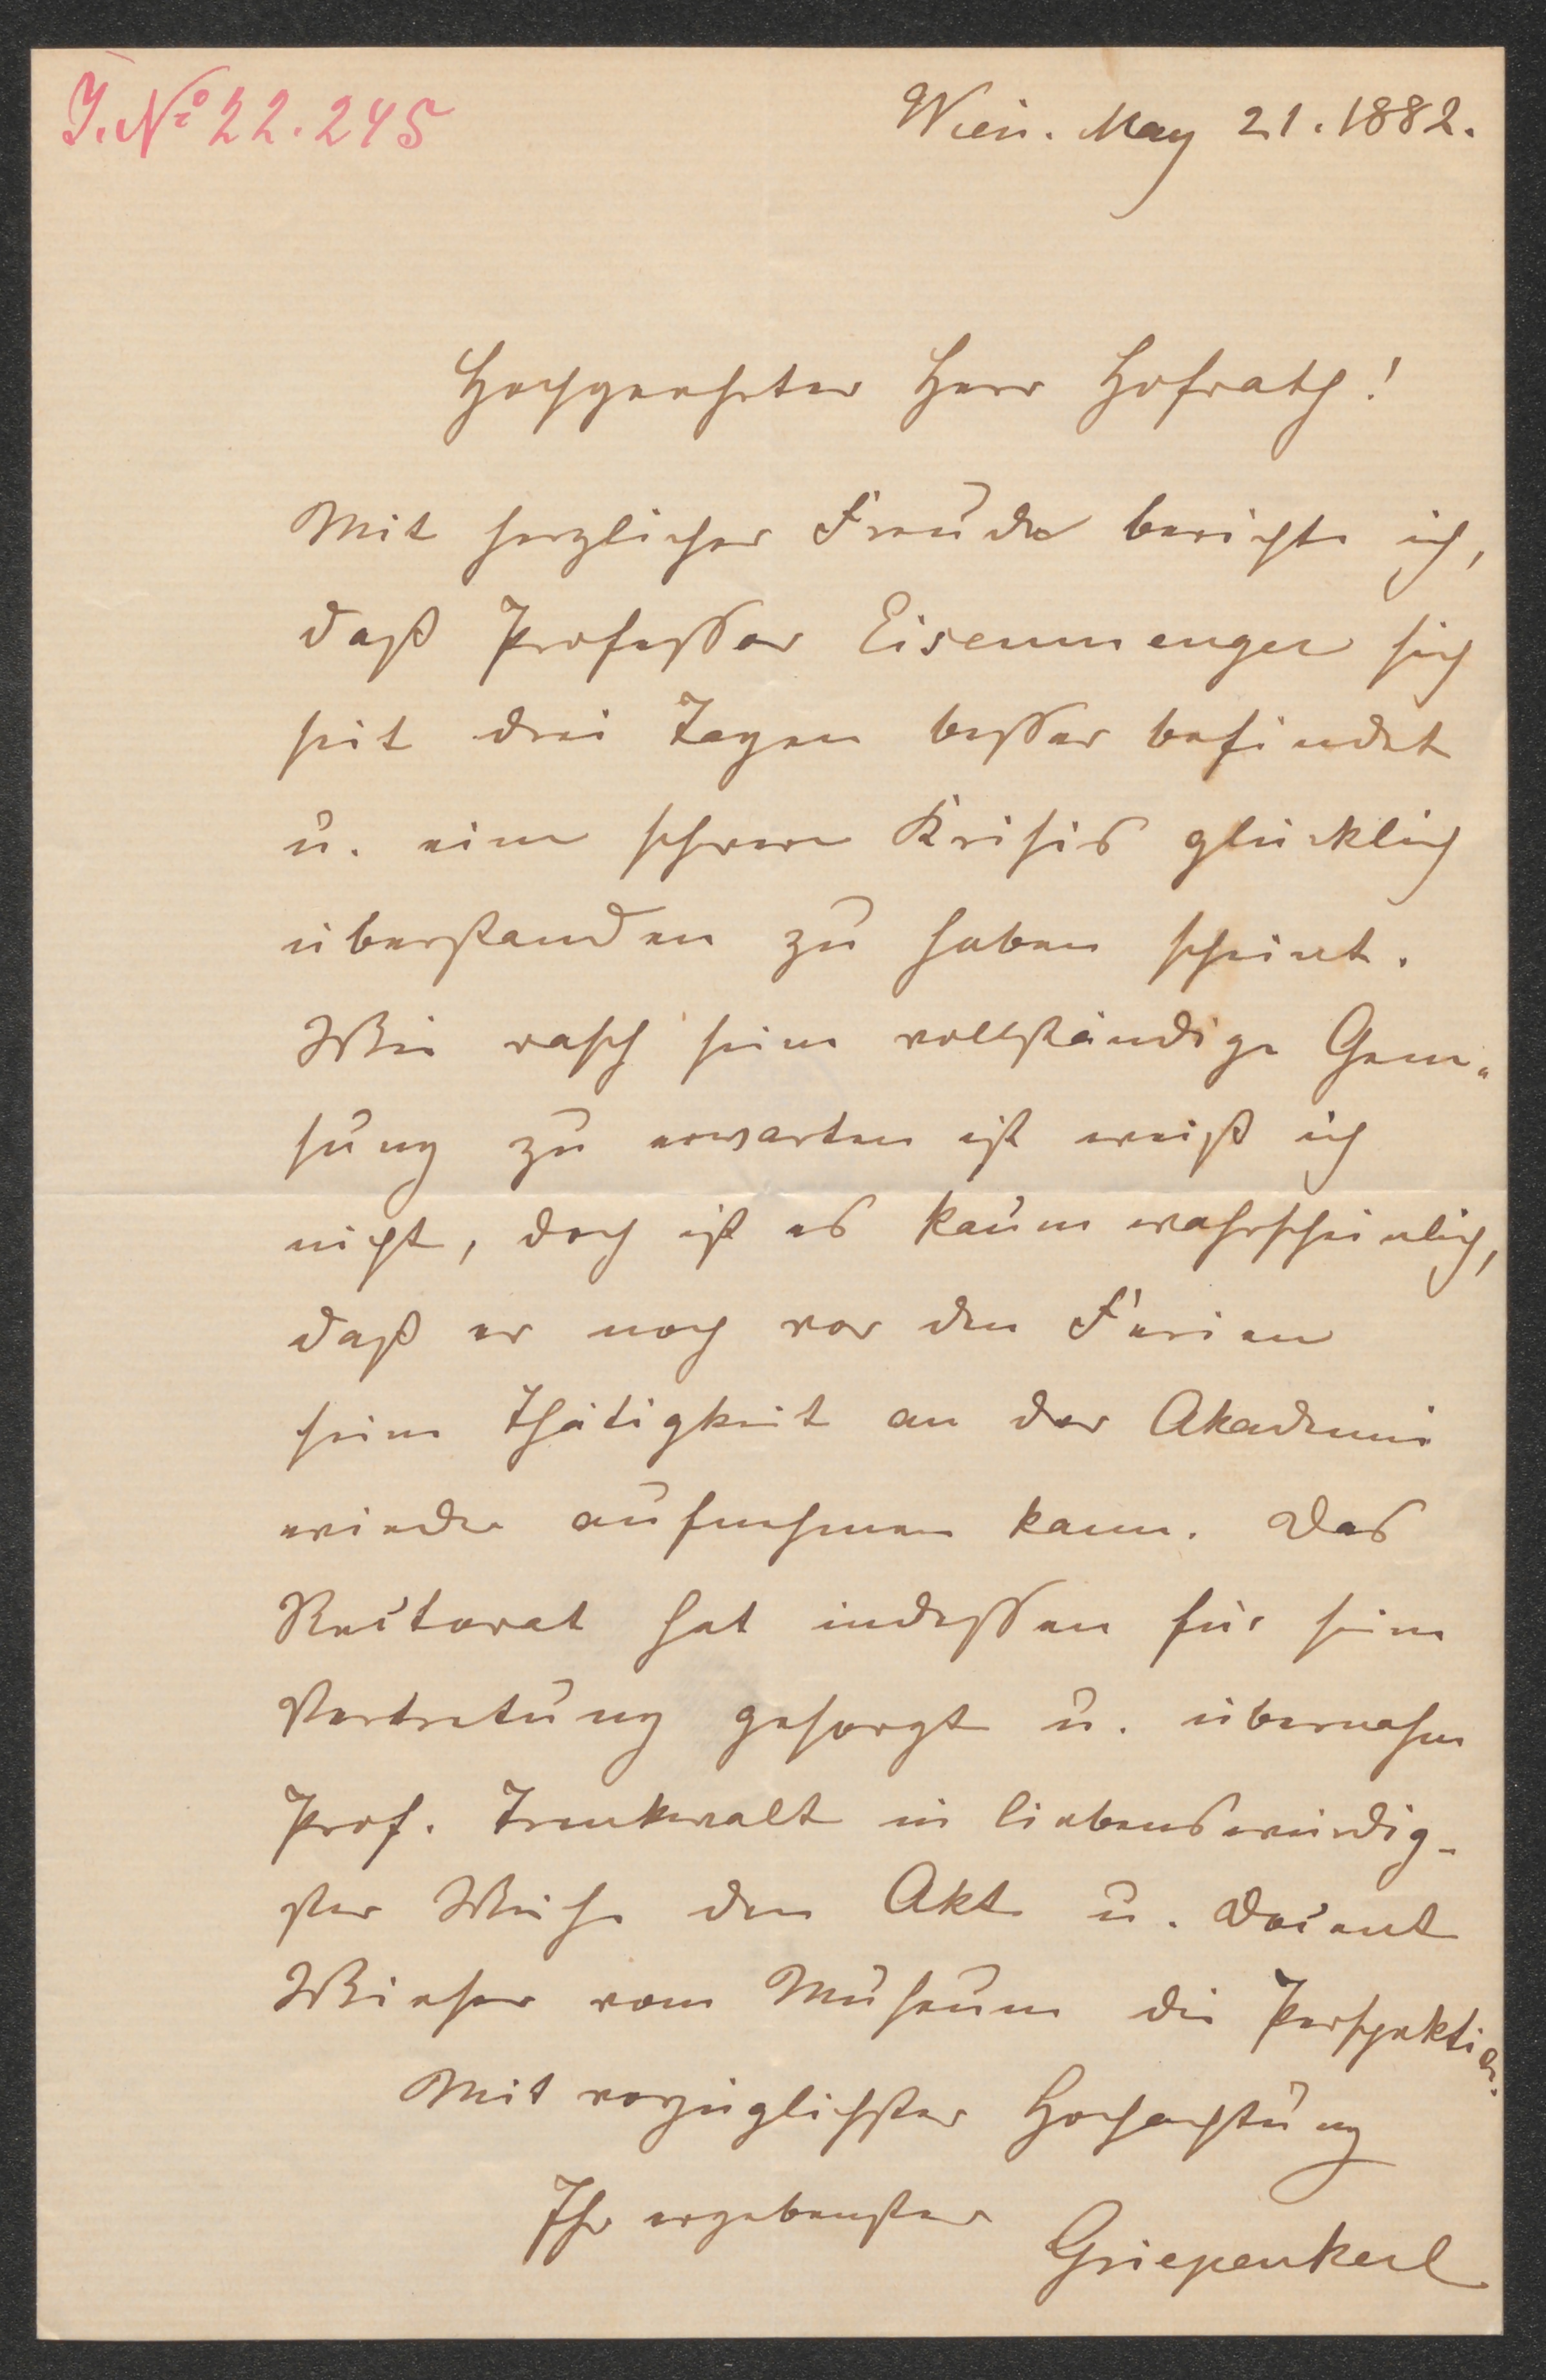 J. No 22.245
Wien. May 21. 1882.
Hochgeehrter Herr Hofrath!
Mit herzlicher Freude berichte ich,
daß Professor Eisenmenger sich
seit drei Tagen besser befindet
u. eine schwere Krisis glücklich
überstanden zu haben scheint.
Wie rasch seine vollständige Gene„
sung zu erwarten ist weiß ich
nicht, doch ist es kaum wahrscheinlich,
daß er noch vor den Ferien
seine Thätigkeit an der Akademie
wieder aufnehmen kann. Das
Rectorat hat indessen für seine
Vertretung gesorgt u. übernahm
Prof. Trenkwalt in liebenswürdig-
ster Weise den Akt u. Docent
Wieser vom Museum die Perspektive.
Mit vorzüglichster Hochachtung
Ihr ergebenster
Griepenkerl